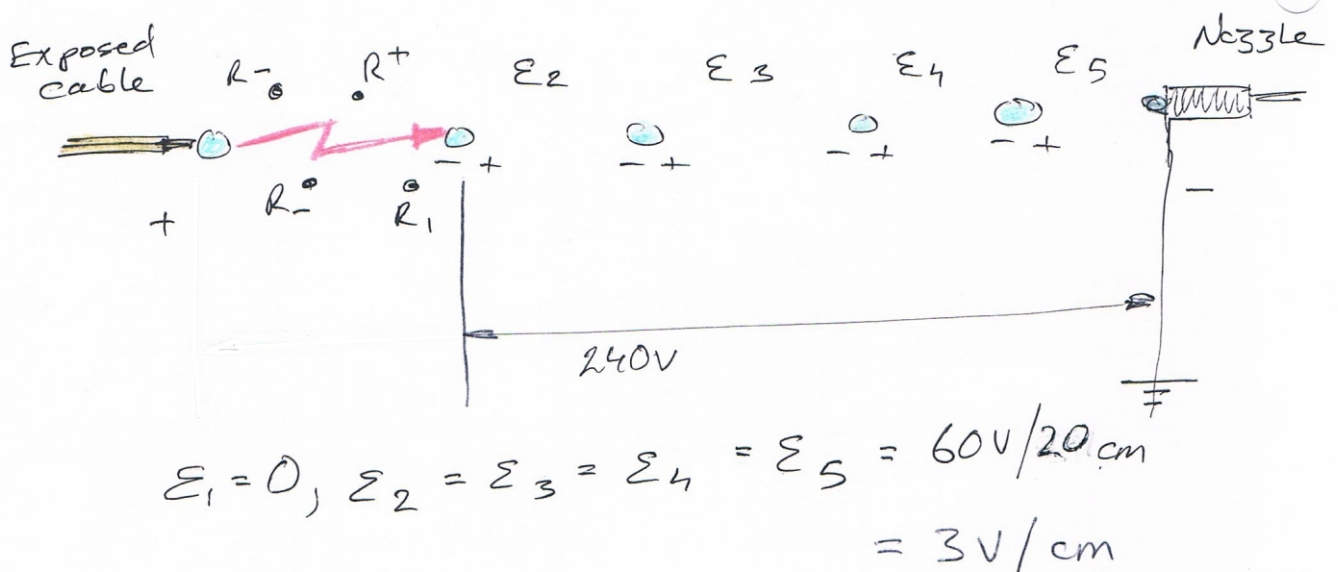 Exposed cable
R- R+ Ɛ2 Ɛ3 Ɛ4 Ɛ5 Nozzle
- + - + - + - +
R- R1
+ -
240V
Ɛ1 = 0, Ɛ2 = Ɛ3 = Ɛ4 = Ɛ5 = 60V/20cm
= 3V/cm